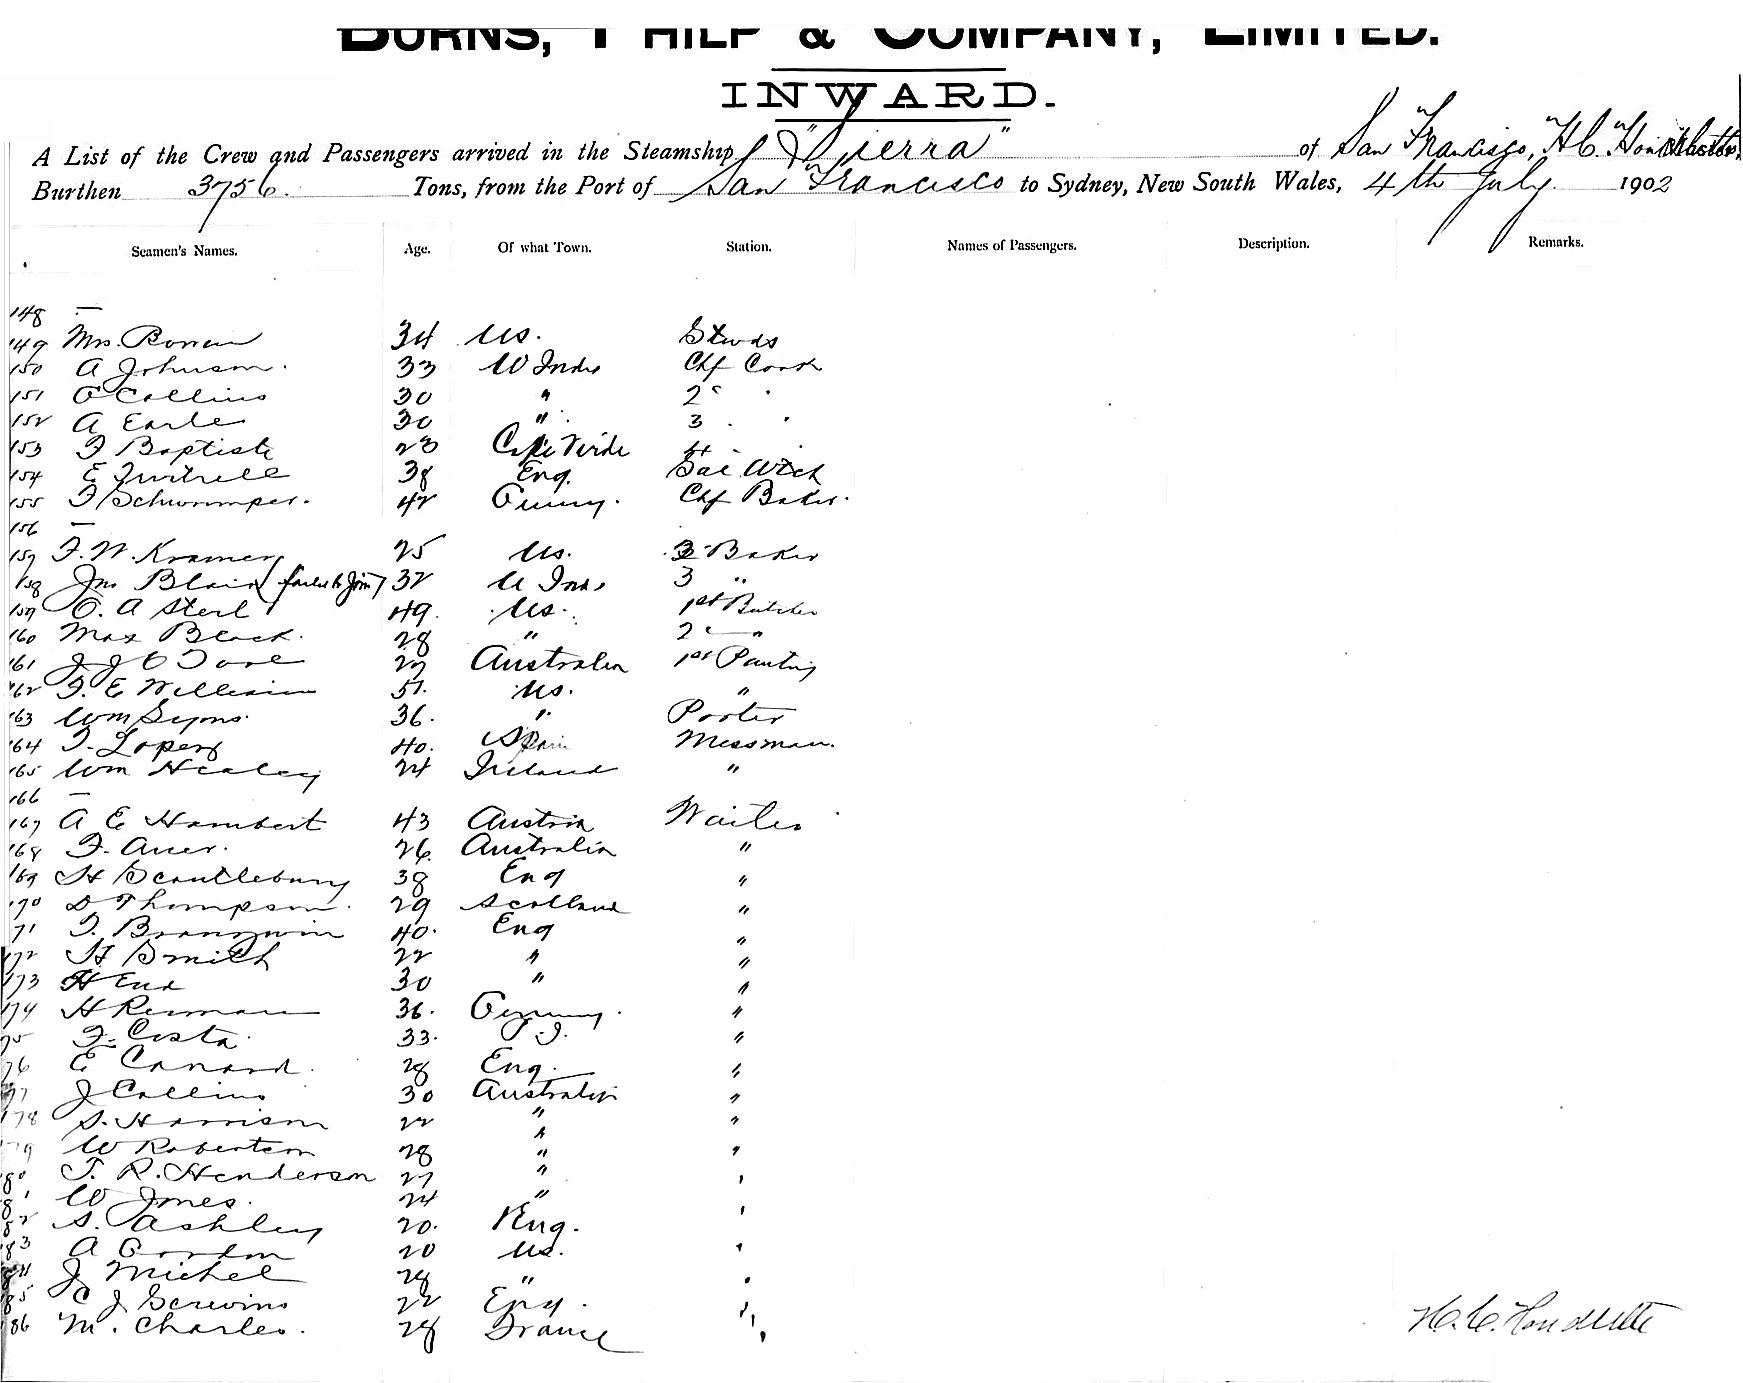 BURNS, PHILP & COMPANY, LIMITED.
INWARD.
A List of the Crew and Passengers arrived in the Steamship "Sierra" of San Francisco, H.C. Master,
Burthen 3756. Tons, from the Port of San Francisco to Sydney, New South Wales, 4th July 1902
Seamen's Names. Age. Of what Town. Station. Names of Passengers. Description. Remarks.
148 —
149 Mrs. 34 US. Stwds
150 A Johnson. 33 W Inds Chf Cook
151 Collins 30 " 2d "
152 A Earle 30 " 3 "
153 Baptiste 28 Cape Verde 4
154 E 38 Eng.
155 42 Germy. Chf Baker.
156 —
157 F. W. Kramer 25 US. 2 Baker
158 Jno Blair (failed to Join) 32 W Inds 3 "
159 C. A Sterl 49. US. 1st Butcher
160 Max Black. 28 " 2d "
161 J J O 27 Australia 1st
162 F. E William 51. US. "
163 Wm Syms. 36. " Porter
164 Lopez 40. Spain Messman.
165 Wm Healey 24 Ireland "
166 —
167 A E Hambert 43 Austria Waiter
168 F. Auer. 26. Australia "
169 H Scantlebury 38 Eng "
170 D Thompson. 29 Scotland "
171 40. Eng "
172 H Smith 22 " "
173 H 30 " "
174 H 36. Germy. "
175 Costa. 33. P.I. "
176 E Canard. 28 Eng. "
177 J Collins 30 Australia "
178 S. Harrison 22 " "
179 W Robertson 28 " "
180 T. R. Henderson 27 " "
181 W Jones. 24 " "
182 S. Ashley 20. Eng. "
183 A Gordon 20 US. "
184 J Michel 28 " "
185 C J 22 Eng. "
186 M. Charles. 28 France "
H. C.